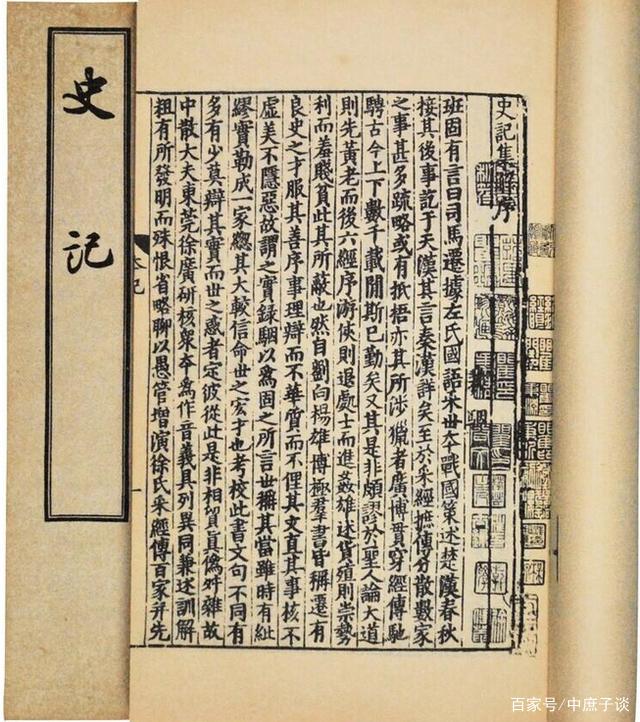 史記
史記集解序
班固有言曰司馬遷據左氏國語采丗夲戰國策述楚漢春秋
接其後事訖于天漢其言秦漢詳矣至於采經摭傳分散數家
之事甚多疏略或有抵梧亦其所涉獵者廣博貫穿經傳馳
騁古今上下數千載閒斯已勤矣又其是非頗謬於聖人論大道
則先黃老而後六經序游俠則退處士而進姦雄述貨殖則崇勢
利而羞賤貧此其所蔽也然自劉向楊雄博極羣書皆稱遷有
良史之才服其善序事理辯而不華質而不俚其文直其事核不
虛美不隱惡故謂之實録駰以爲固之所言世稱其當雖時有紕
繆實勒成一家緫其大較信命世之宏才也考校此書文句不同有
多有少莫辯其實而世之惑者定彼從此是非相貿真偽舛雜故
中散大夫東莞徐廣研核衆夲爲作音義具列異同兼述訓解
粗有所發明而殊恨省略聊以愚管增演徐氏采經傳百家并先
百家号/中庶子谈